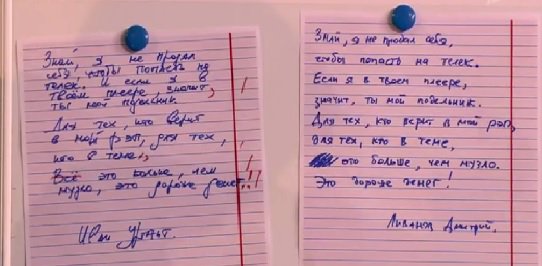 Знай, я не продал
себя, чтобы попасть на
телек. И если я в
твоём плеере, значит,
ты мой
Для тех, кто верит
в мой рэп, для тех,
кто в теме,
Всё это больше, чем
музло, это дороже денег!
Иван Ургант.
Знай, я не продал себя,
чтобы попасть на телек.
Если я в твоем плеере,
значит, ты мой подельник.
Для тех, кто верит в мой рэп,
для тех, кто в теме,
это больше, чем музло.
Это дороже денег!
Ливанов Дмитрий.